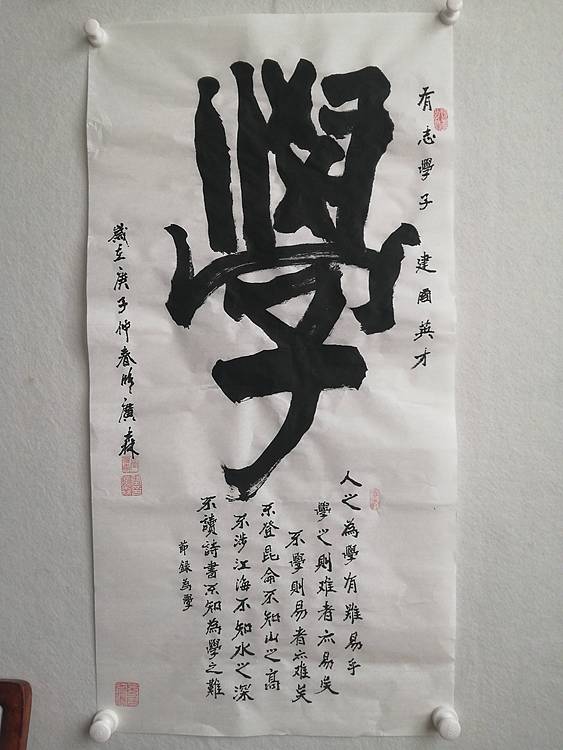 有志學子 建國英才
學
人之為學有難易乎
學之則难者亦易矣
不學則易者亦难矣
不登昆侖不知山之高
不涉江海不知水之深
不讀詩書不知為學之難
節錄為學
歲在庚子仲春 廣森